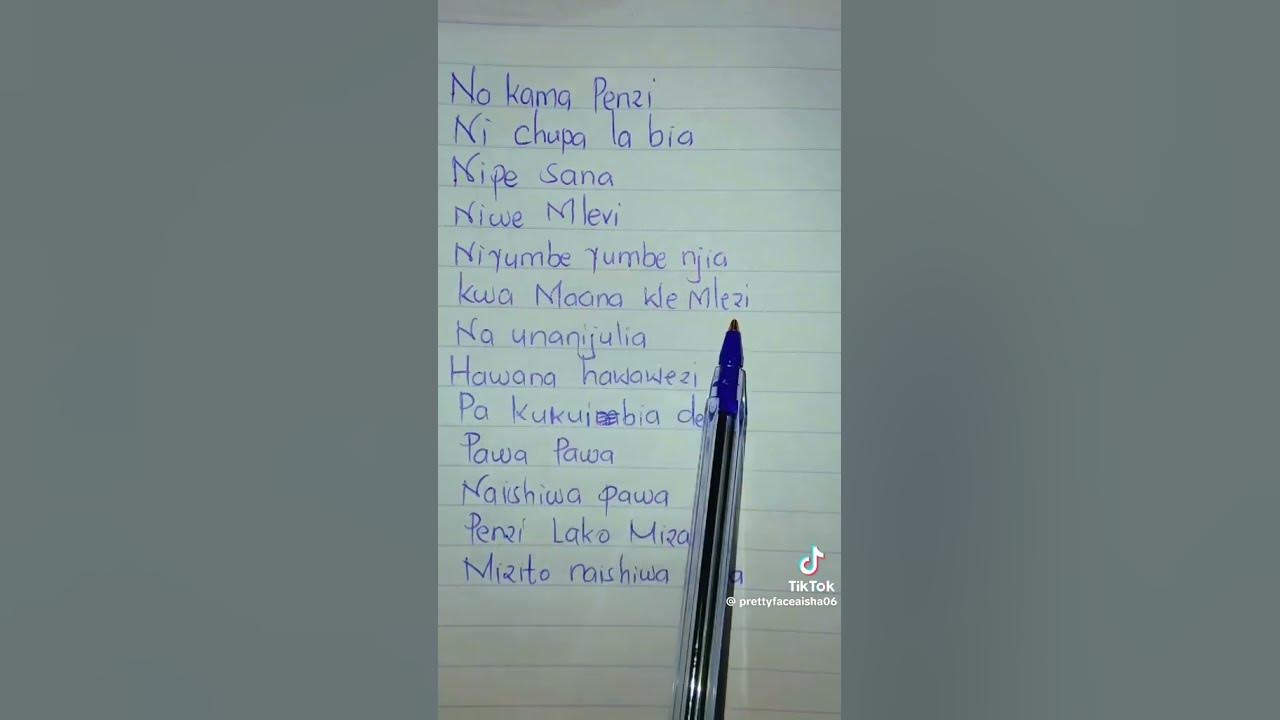 No kama Penzi
Ni chupa la bia
Nipe sana
Niwe Mlevi
Niyumbe yumbe njia
kwa Maana We Mlezi
Na unanijulia
Hawana hawawezi
Pa kukuibia de
Pawa Pawa
Naishiwa pawa
Penzi Lako Miza
Mizito naishiwa a
TikTok
@ prettyfaceaisha06